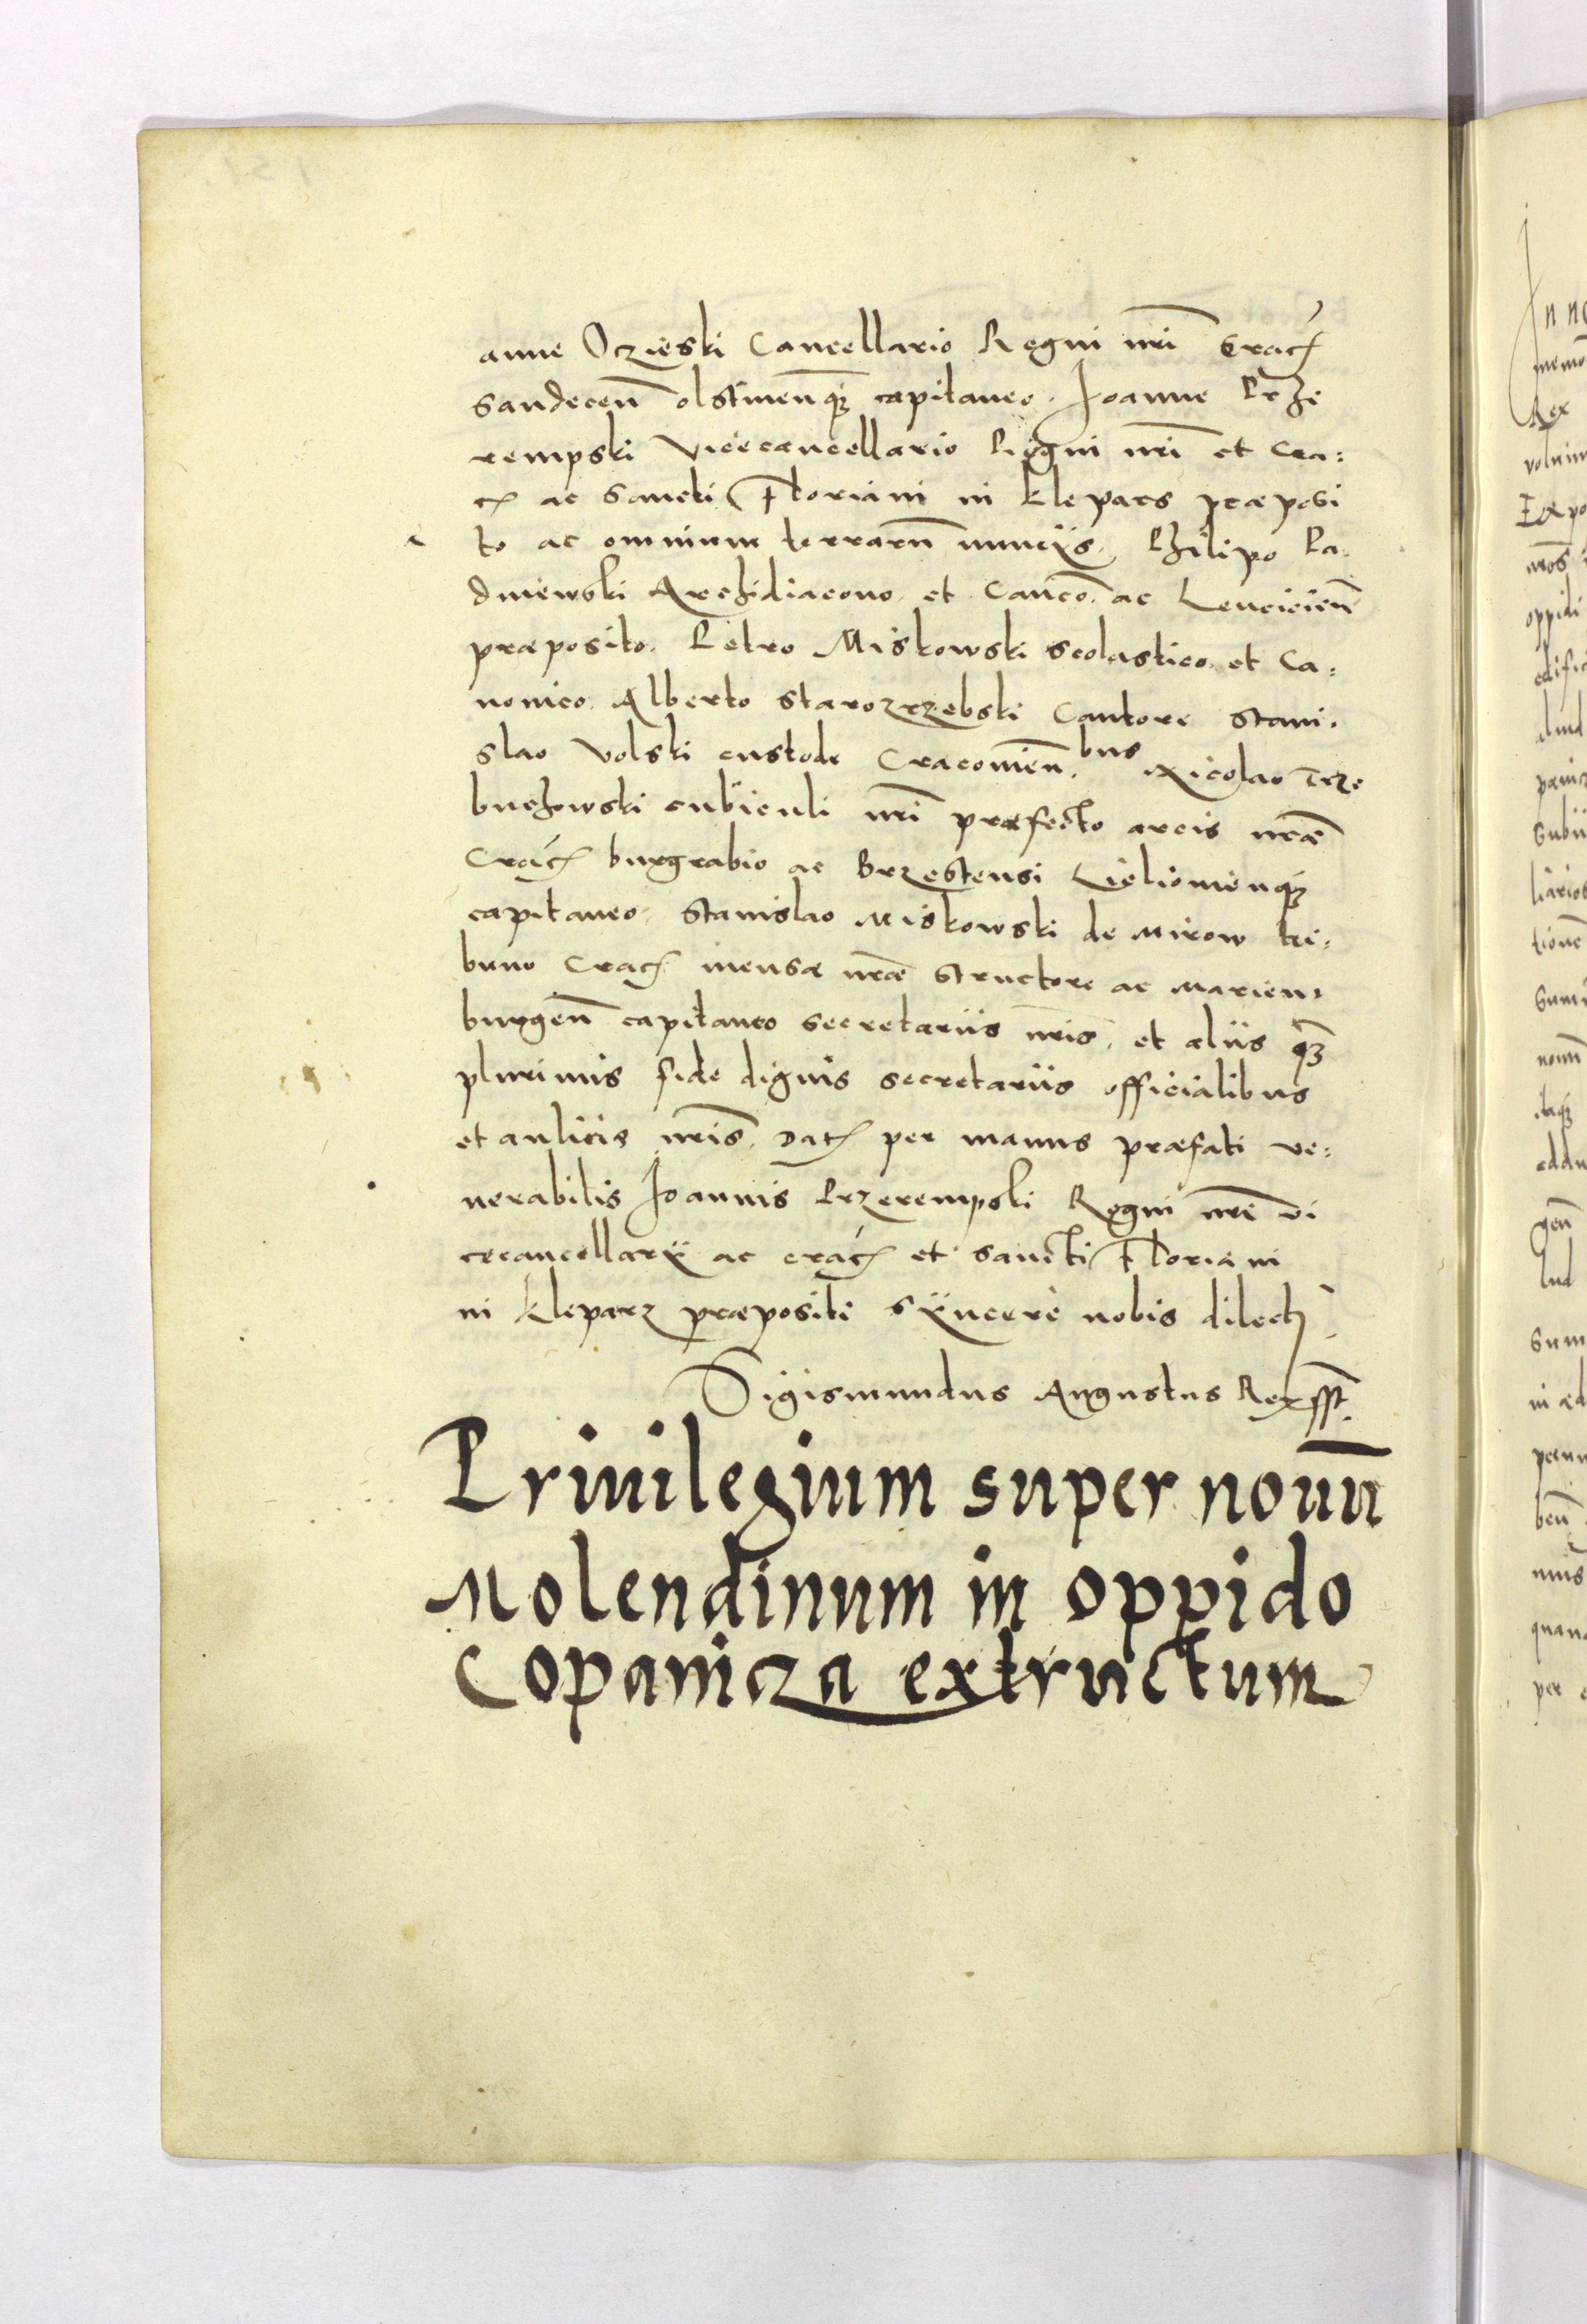 anne Oczieski Cancellario Regni nri Crac
Sandecen olstinenq; capitaneo. Joanne Prze
rempski Vicecancellario Regni nri et Cra:
c ac Sancti Floriani in Klepars præposi
to ac omnium terrarū nunciis. Philipo Pa:
dniewski Archidiacono. et Canco. ac Lenciciēn
præposito. Petro Miskowski scolastico. et Ca:
nonico. Alberto Starozrzebski Cantore Stani:
slao Volski custode Cracouien.bus Nicolao Trze
buchowski cubiculi nri præfecto arcis nræ
Crac burgrabio ac Brzestensi Lielionienq;
capitaneo. Stanislao Miskowski de Mirow tri:
buno Crac mensæ nræ structore ac Marien:
burgen capitaneo secretariis nris. et aliis q;
plurimis fide dignis secretariis officialibus
et aulicis nris. Dat per manus præfati ve:
nerabilis Joannis Przerempski Regni nri vi
cecancellarii ac crac et sancti Floriani
in Kleparz præpositi sÿncere nobis dilecti
Sigismundus Augustus Rex sst.
Priuilegium super nouū
Molendinum in oppido
Copanicza extructum